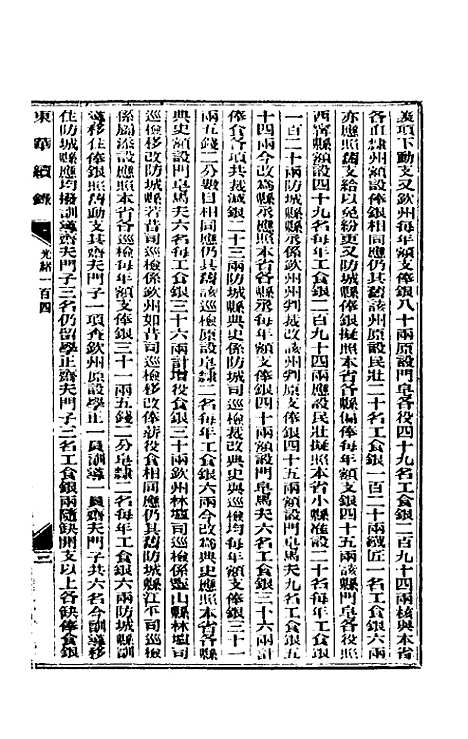 羨項下動支又欽州每年額支俸銀八十兩原設門皁各役四十九名工食銀二百九十四兩核與本省
各直隸州額設俸銀相同應仍其舊該州原設民壯二十名工食銀一百二十兩鐵匠一名工食銀六兩
亦應照舊支給以免紛更又防城縣俸銀擬照本省各縣偏俸每年額支銀四十五兩該縣門皁各役照
西寗縣額設四十九名每年工食銀二百九十四兩應設民壯擬照本省小縣准設二十名每年工食銀
一百二十兩防城縣縣丞係欽州州判裁改該州判原支俸銀四十五兩額設門皁馬夫九名工食銀五
十四兩今改爲縣丞應照本省各縣縣丞每年額支俸銀四十兩額設門皁馬夫六名工食銀三十六兩計
俸食各項共裁減銀二十三兩防城縣典史係防城司巡檢裁改典史與巡檢每年額支俸銀三十一
兩五錢二分數目相同應仍其舊該巡檢原設皁隸二名每年工食銀十二兩今改爲典史應照本省各縣
典史額設門皁馬夫六名每年工食銀三十六兩計增役食銀二十兩欽州林墟司巡檢係靈山縣林墟司
巡檢移改防城縣若昔司巡檢係欽州如昔司巡檢移改俸薪役食相同應仍其舊防城縣江平司巡檢
係屬添設應照本省各巡檢每年額支俸銀三十一兩五錢二分皁隸二名每年工食銀六兩防城縣訓
導移住俸銀照舊動支其齋夫門子一項查欽州原設學正一員訓導一員齋夫門子共六名今訓導移
住防城縣應均撥訓導齋夫門子三名仍留學正齋夫門子三名工食銀兩隨缺開支以上各缺俸食銀
東華續錄
光緒一百四
三